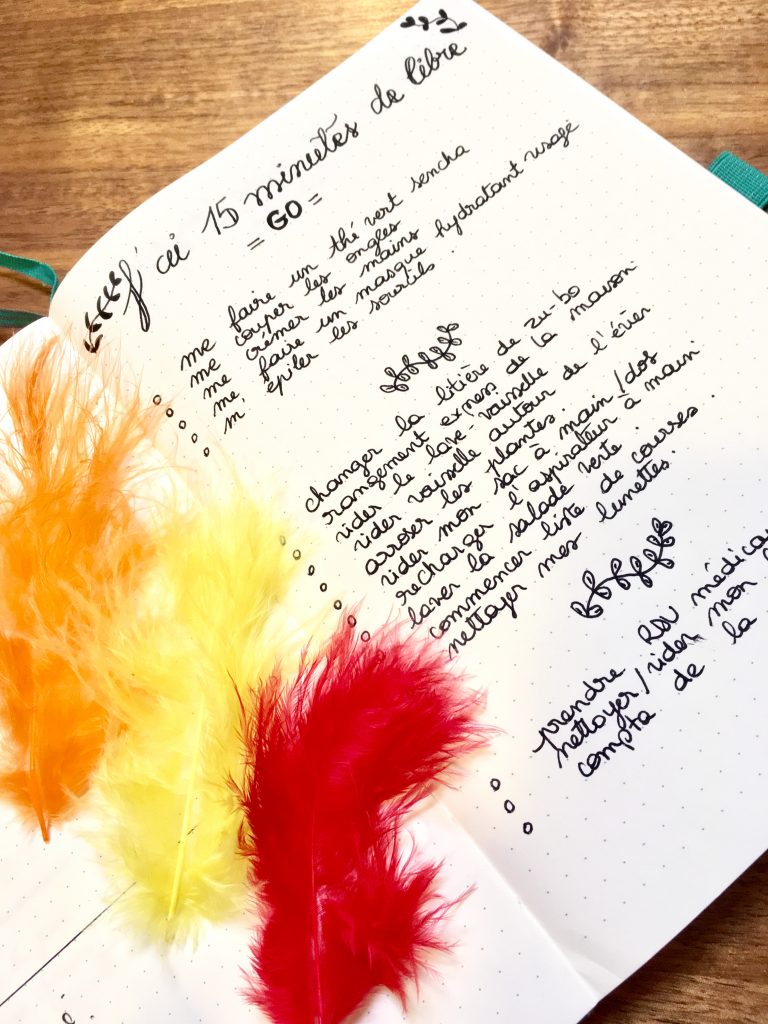 J'ai 15 minutes de libre
= GO =
me faire un thé vert sencha
me couper les ongles
me crémer les mains
me faire un masque hydratant visage
m'épiler les sourcils.
changer la litière de zu-bo
rangement express de la maison.
vider le lave-vaisselle
vider vaisselle autour de l'évier.
arroser les plantes.
vider mon sac à main/dos
recharger l'aspirateur à main
laver la salade verte.
commencer liste de courses.
nettoyer mes lunettes.
prendre RDV
nettoyer/vider mon
compta de la